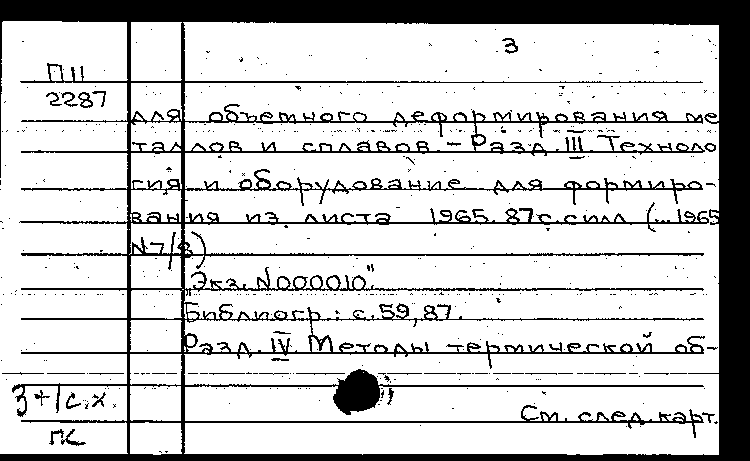 3
П11
2287
для объемного деформирования ме
таллов и сплавов. – Разд. III. Техноло
гия и оборудование для формиро-
вания из листа 1965. 87с.силл. (...1965
N7/8)
"Экз. N000010".
Библиогр.: с.59,87.
Разд. IV. Методы термической об-
3+1с.х.
См. след. карт.
ПК